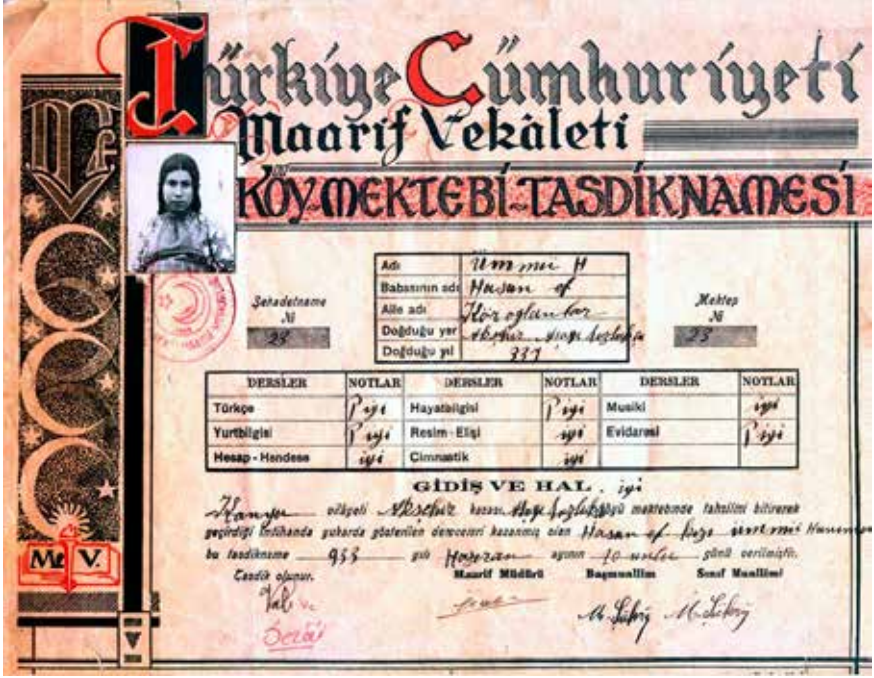 Türkiye Cümhuriyeti
Maarif Vekâleti
KÖY-MEKTEBİ-TASDİKNAMESİ
Adı Ümmü H
Babasının adı Hasan ef
Aile adı Köroğlanlar
Doğduğu yer Akşehir
Doğduğu yıl 331
Şehadetname
№
23
Mektep
№
23
DERSLER NOTLAR DERSLER NOTLAR DERSLER NOTLAR
Türkçe P iyi Hayatbilgisi P iyi Musiki iyi
Yurtbilgisi P iyi Resim-Elişi iyi Evidaresi P iyi
Hesap-Hendese iyi Cimnastik iyi
GİDİŞ VE HAL. iyi
Konya vilâyeti Akşehir kazası köyü mektebinde tahsilini bitirerek
geçirdiği imtihanda yukarda gösterilen dereceleri kazanmış olan Hasan ef kızı ümmü Hanıma
bu tasdikname 933 yılı Haziran ayının 10 uncu günü verilmiştir.
Tasdik olunur. Maarif Müdürü Başmuallim Sınıf Muallimi
Vali
M. Şükrü M. Şükrü
M. V.